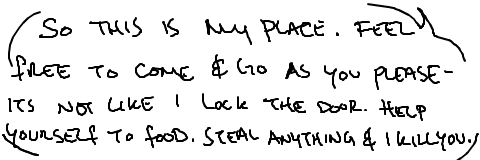 SO THIS IS MY PLACE. FEEL
FREE TO COME & GO AS YOU PLEASE-
ITS NOT LIKE I LOCK THE DOOR. HELP
YOURSELF TO FOOD. STEAL ANYTHING & I KILL YOU.